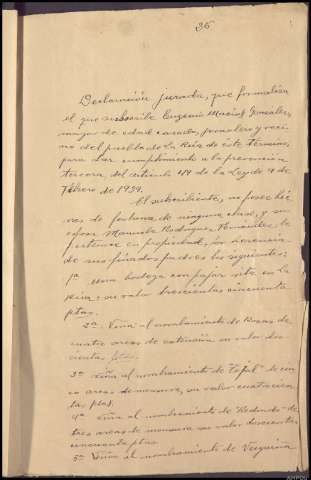 35
Declaración jurada, que formaliza
el que subscribe Eugenio Macías González,
mayor de edad casado, jornalero y veci-
no del pueblo de La Rúa de este Término,
para dar cumplimiento a la prevención
tercera del artículo 49 de la Ley de 9 de
Febrero de 1939.
El subscribiente, no posee bie-
nes de fortuna de ninguna clase, y su
esposa Manuela Rodríguez Fernández, le
pertenece en propiedad, por herencia
de sus finados padres los siguientes:
1ª una bodega con pajar sita en la
Rúa; su valor trescientas cincuenta
ptas.
2ª Viña al nombramiento de de
cuatro areas de extensión su valor dos-
cientas ptas.
3ª Viña al nombramiento de de cin-
co areas de mensura, su valor cuatrocien-
tas ptas.
4ª Viña al nombramiento de Redondo de
tres areas de mensura su valor doscientas
cincuenta ptas.
5ª Viña al nombramiento de
AHPOU